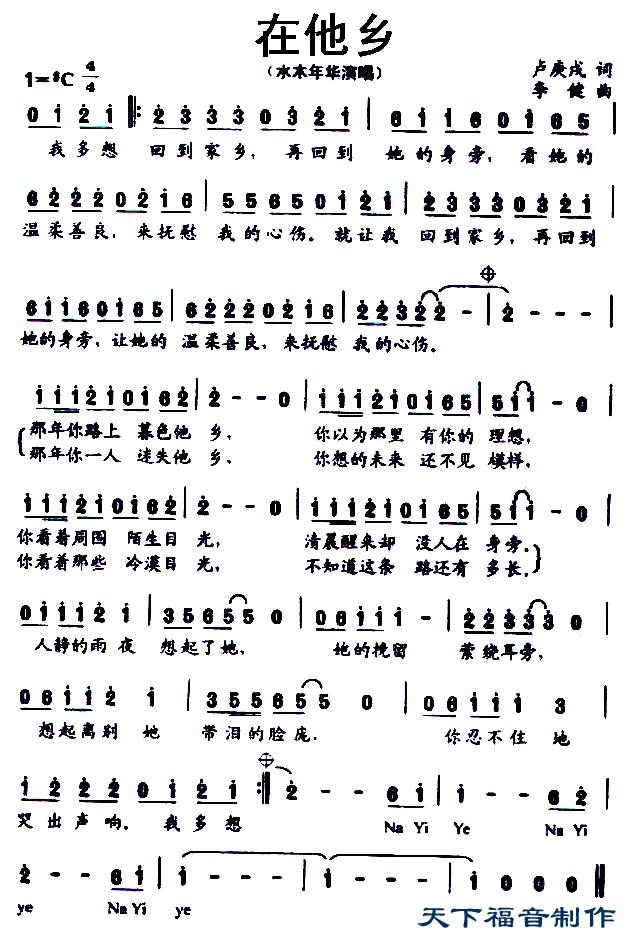 在他乡
（水木年华演唱）
1=#C 4/4
卢庚戌 词
李健 曲
0 1 2 1 2 3 3 3 3 0 3 2 1 6 1 1 6 0 1 6 5
我多想 回到家乡，再回到 她的身旁，看她的
6 2 2 2 2 0 2 1 6 5 5 6 5 0 1 2 1 2 3 3 3 3 0 3 2 1
温柔善良，来抚慰 我的心伤。就让我 回到家乡，再回到
6 1 1 6 0 1 6 5 6 2 2 2 2 0 2 1 6 2 2 3 2 2 - - 2 - - -
她的身旁，让她的 温柔善良，来抚慰 我的心伤。
1 1 1 2 1 0 1 6 2 2 - - 0 1 1 1 2 1 0 1 6 5 5 1 1 - 0
那年你踏上 暮色他乡， 你以为那里 有你的理想，
那年你一人 迷失他乡， 你想的未来 还不见模样，
1 1 1 2 1 0 1 6 2 2 - - 0 1 1 1 2 1 0 1 6 5 5 1 1 - 0
你看着周围 陌生目光， 清晨醒来却 没人在身旁。
你看着那些 冷漠目光， 不知道这条 路还有多长。
0 1 1 1 2 1 3 5 6 5 5 0 0 6 1 1 1 2 2 3 3 3 0
人静的雨夜 想起了她， 她的挽留 萦绕耳旁，
0 6 1 1 2 1 3 5 5 6 5 5 0 0 6 1 1 1 3
想起离别她 带泪的脸庞。 你忍不住地
1 2 2 2 0 1 2 1 2 - - 6 1 1 - - 6 2
哭出声响。我多想 Na Yi Ye Na Yi
2 - - 6 1 1 - - - 1 - - - 1 0 0 0
ye Na Yi ye
天下福音制作